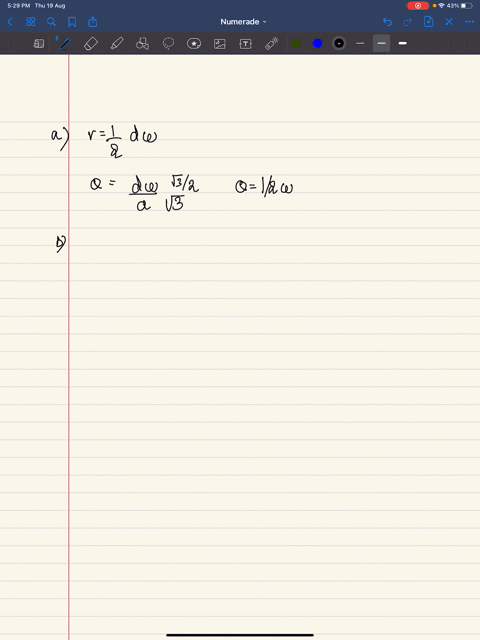 5:29 PM Thu 19 Aug 43%
Numerade
T
a) r = 1/2 dω
Q = dω/a √3/2/√3 Q = 1/2 ω
b)